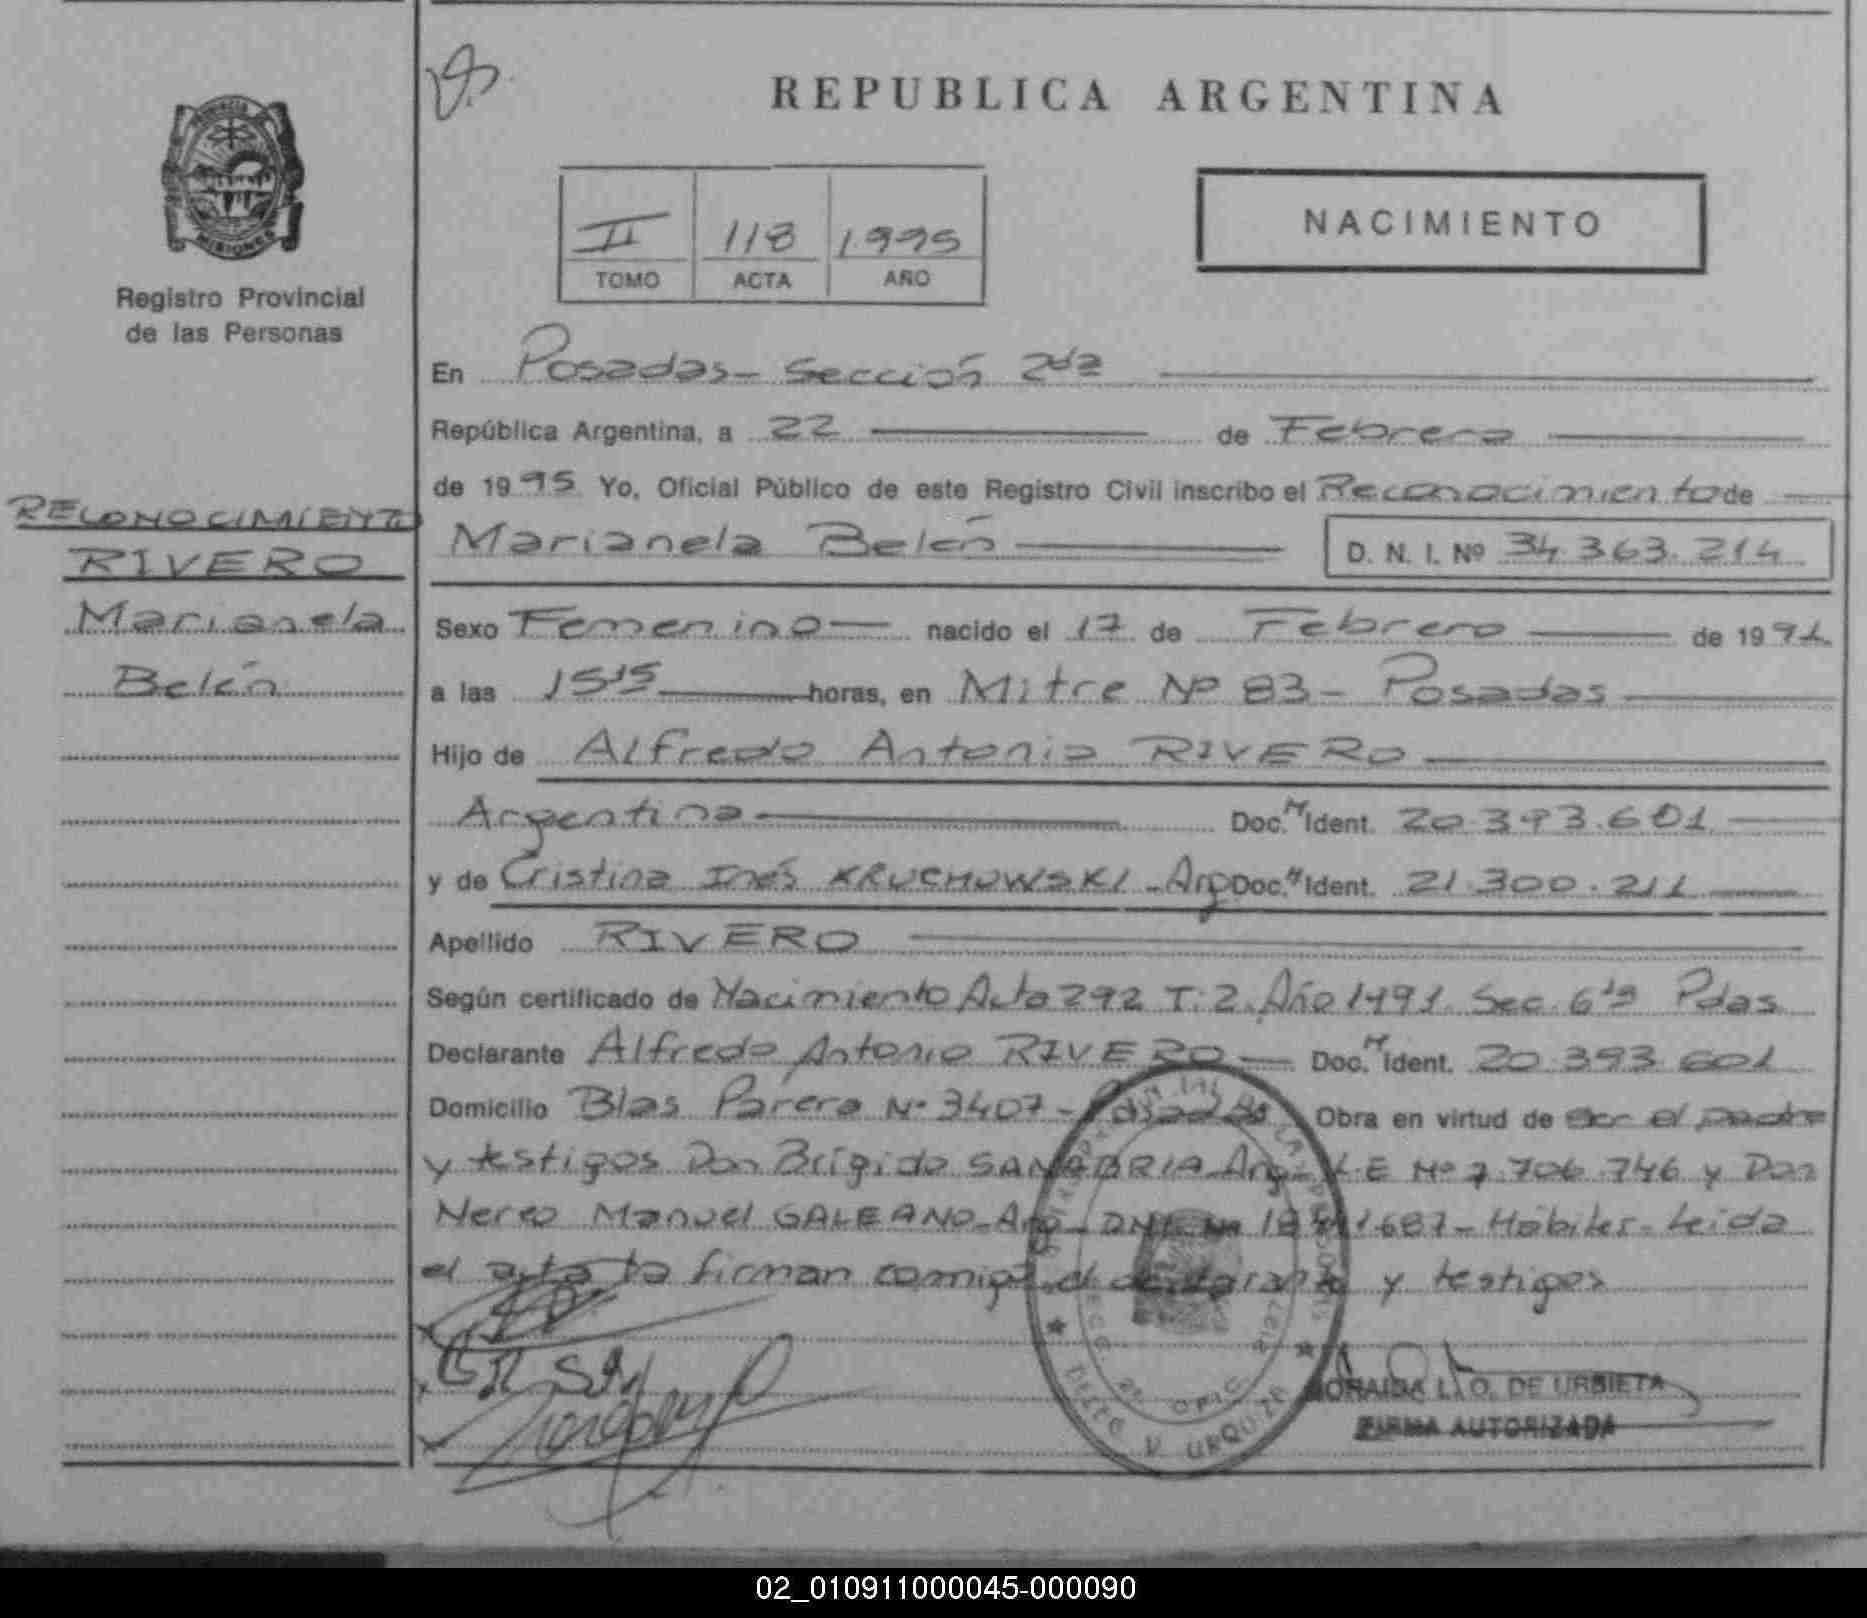 REPUBLICA ARGENTINA
PROVINCIA
MISIONES
Registro Provincial
de las Personas
II 118 1995
TOMO ACTA AÑO
NACIMIENTO
RECONOCIMIENTO
RIVERO
Marianela
Belén
En Posadas - Sección 2da
República Argentina, a 22 de Febrero
de 1995 Yo, Oficial Público de este Registro Civil inscribo el Reconocimiento de
Marianela Belén D. N. I. Nº 34.363.214
Sexo Femenino nacido el 17 de Febrero de 1991
a las 15 15 horas, en Mitre Nº 83 - Posadas
Hijo de Alfredo Antonio RIVERO
Argentina Doc. N Ident. 20.393.601
y de Cristina Inés KRUCHOWSKI - Arg Doc. N Ident. 21.300.211
Apellido RIVERO
Según certificado de Nacimiento Acta 292 T. 2. Año 1991. Sec. 6ta Pdas
Declarante Alfredo Antonio RIVERO Doc. N Ident. 20.393.601
Domicilio Blas Parera Nº 3407 - Posadas Obra en virtud de ser el padre
y testigos Don Brígido SANABRIA - Arg - L.E Nº 7.706.746 y Don
Nereo Manuel GALEANO - Arg - DNI Nº 687 - Hábiles - Leída
el acta la firman conmigo el declarante y testigos
L. O. DE URBIETA
FIRMA AUTORIZADA
02_010911000045-000090